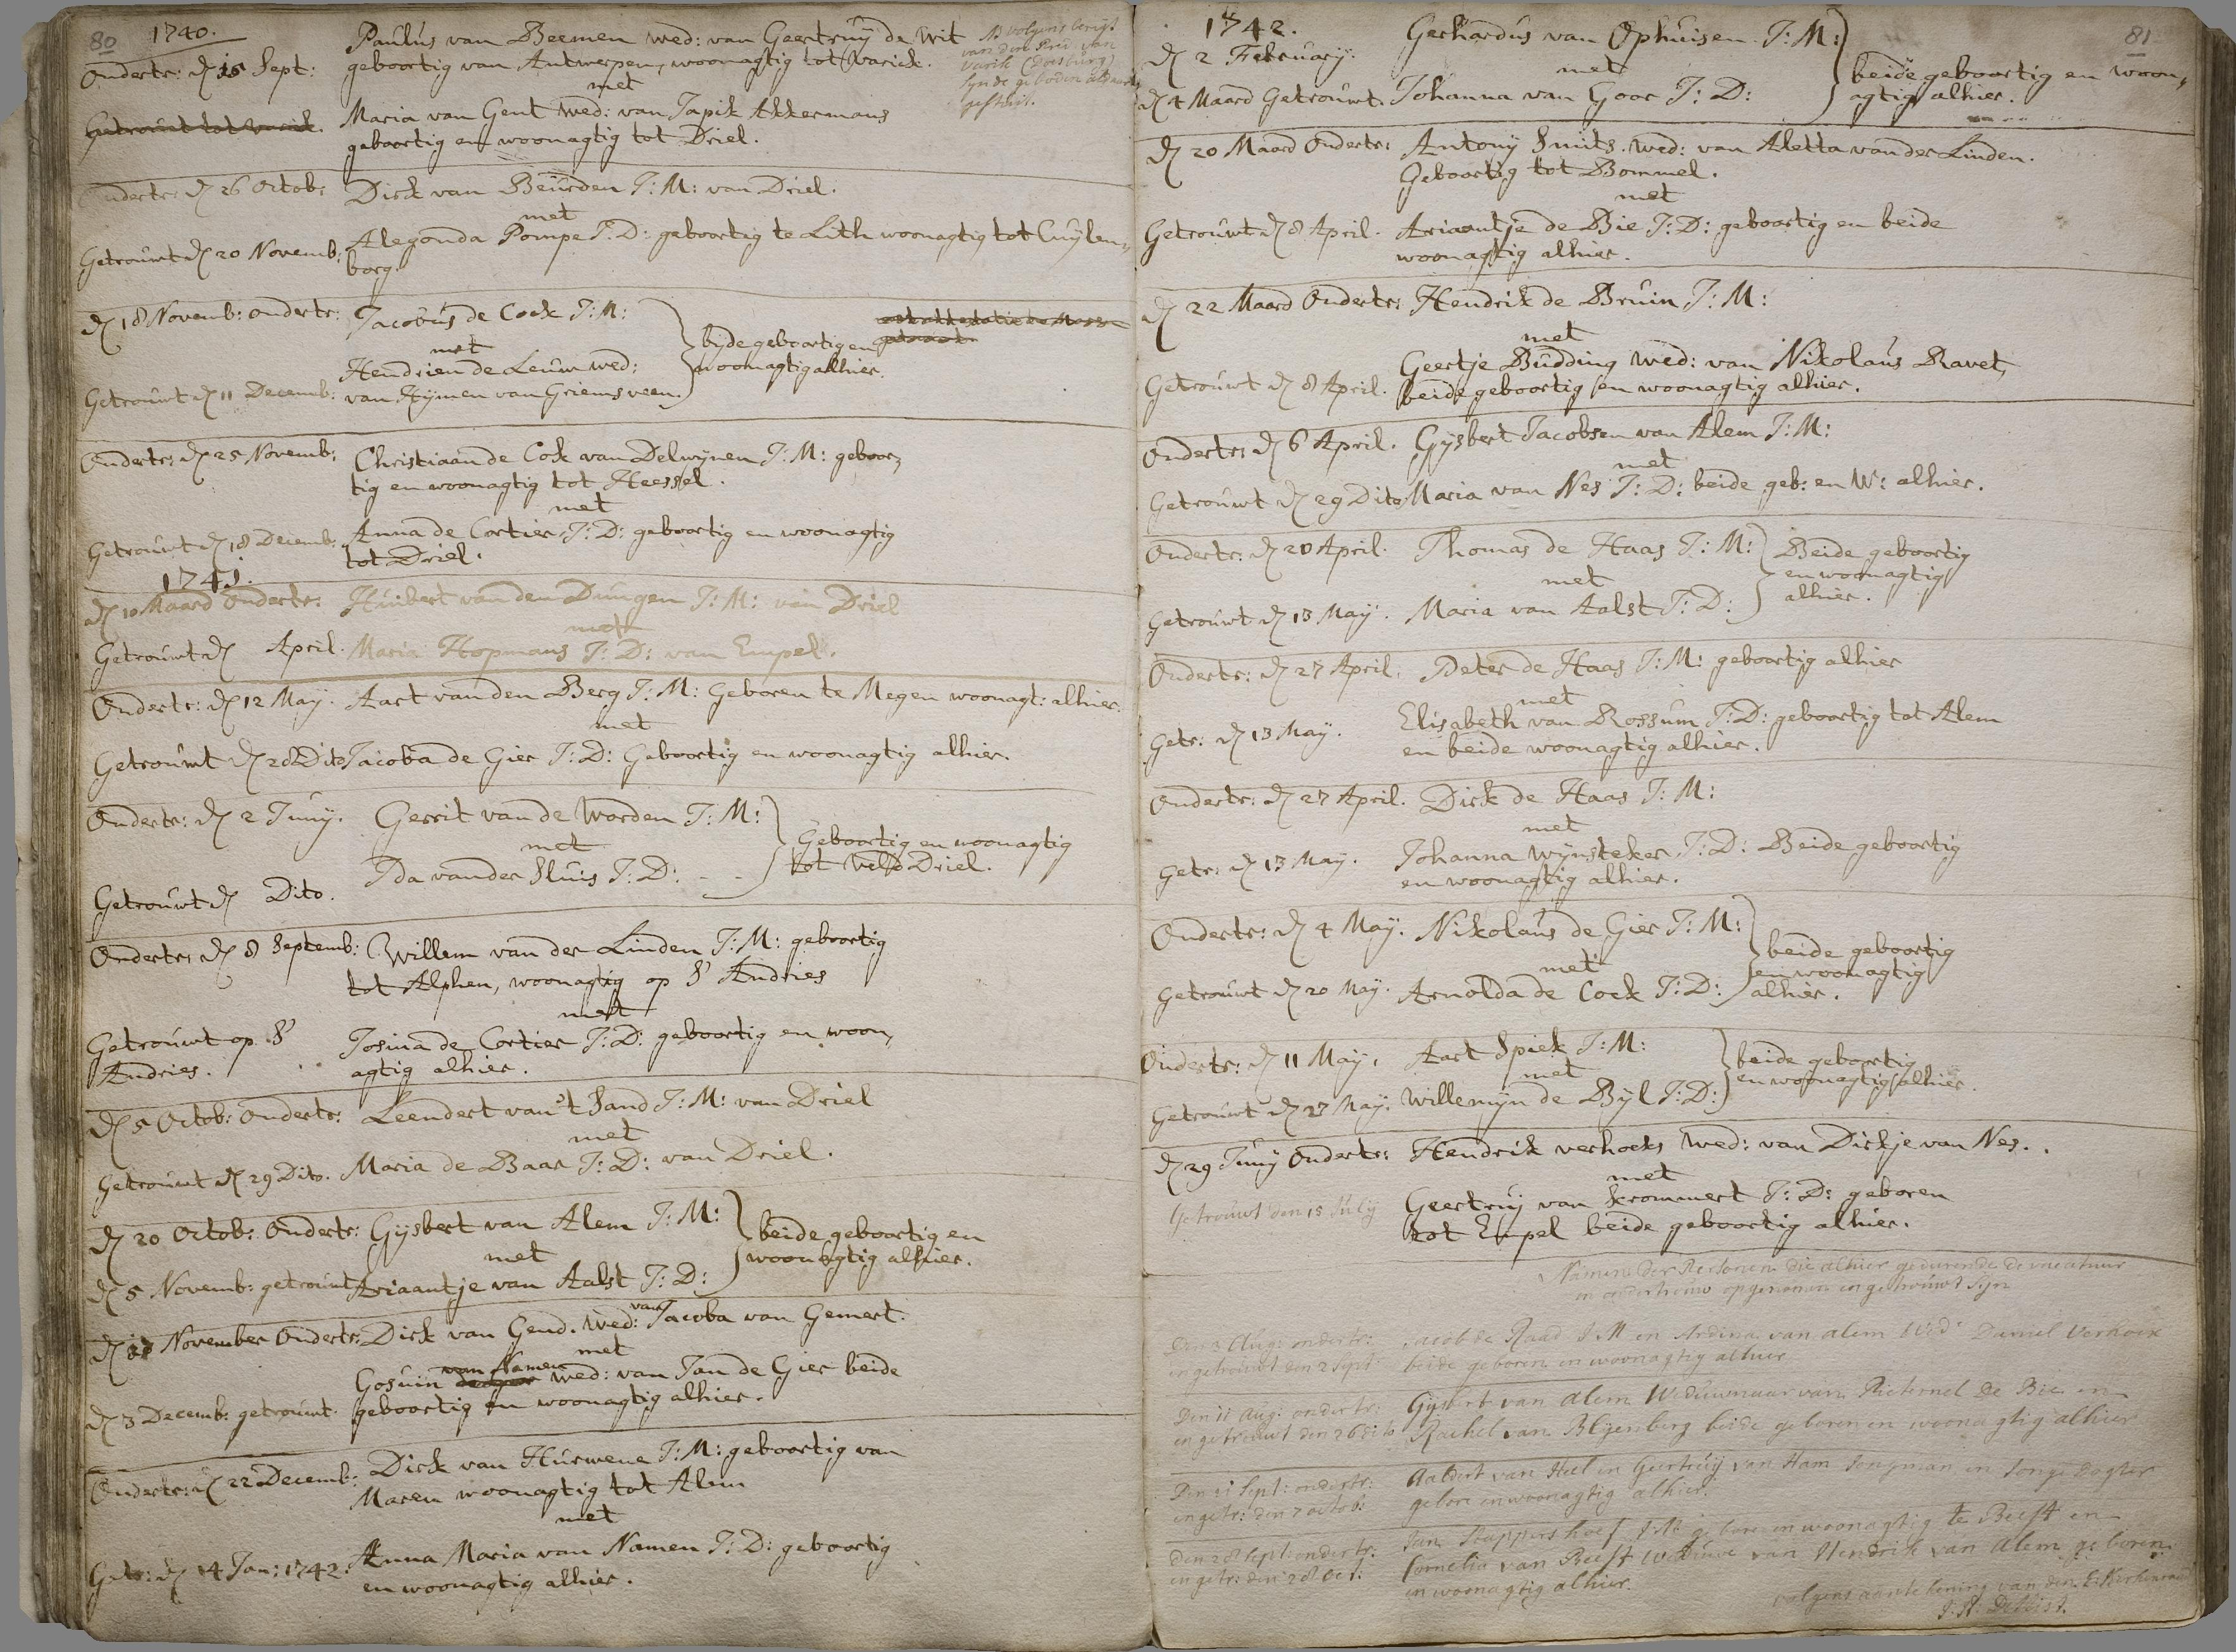 80 1740.
Paulus van Beemen wed: van Geertruÿ de Wit
Onderts: dn 15 Sept: geboortig van Antwerpen, woonagtig tot Varick.
met
NB volgens berigt
van den Pred: van
Varik (Doesburg)
sijn de geboden aldaar
gestuit.
Getrouwt tot Varick. Maria van Gent wed: van Japik Akkermans
geboortig en woonagtig tot Driel.
Onderts: dn 26 Octob: Dirk van Beurden J: M: van Driel.
met
Getrouwt dn 20 Novemb: Alegonda Pompe J: D: geboortig te Lith woonagtig tot Cuÿlen,
borg.
dn 18 Novemb: onderts: Jacobus de Cock J: M:
met
Hendrien de Leuw wed:
Getrouwt dn 11 Decemb: van Hijmen van Griemsveen.
bijde geboortig en
woonagtig alhier.
Onderts: dn 25 Novemb: Christiaan de Cock van Delwijnen J: M: geboor,
tig en woonagtig tot Heessel.
met
Getrouwt dn 18 Decemb: Anna de Cortier J: D: geboortig en woonagtig
tot Driel.
1741.
dn 10 Maard Onderts: Huibert van den Dungen J: M: van Driel
met
Getrouwt dn April. Maria Hopmans J: D: van Empel.
Onderts: dn 12 Maÿ. Aart van den Berg J: M: Geboren te Megen woonagt: alhier.
met
Getrouwt dn 28 Dito Jacoba de Gier J: D: Geboortig en woonagtig alhier.
Onderts: dn 2 Junÿ. Gerrit van de Worden J: M:
met
Getrouwt dn Dito. Ida van der Sluis J: D: - -
Geboortig en woonagtig
tot Velp Driel.
Onderts: dn 8 Septemb: Willem van der Linden J: M: geboortig
tot Alphen, woonagtig op St Andries
met
Getrouwt op St Josina de Cortier J: D: geboortig en woon,
Andries. agtig alhier.
dn 5 Octob: Onderts: Leendert van 't Sand J: M: van Driel
met
Getrouwt dn 29 Dito. Maria de Baar J: D: van Driel.
dn 20 Octob: Onderts: Gijsbert van Alem J: M:
met
dn 5 Novemb: getrouwt Ariaantje van Aalst J: D:
beide geboortig en
woonagtig alhier.
dn 17 November Onderts: Dirk van Gend. wed: van Jacoba van Gemert.
met
Gosuin van Namen wed: van Jan de Gier beide
dn 3 Decemb: getrouwt. geboortig en woonagtig alhier.
Onderts: dn 22 Decemb: Dirk van Hurwene J: M: geboortig van
Maren woonagtig tot Alem
met
Getr: dn 14 Jan: 1742. Anna Maria van Namen J: D: geboortig
en woonagtig alhier.
81
1742. Gerhardus van Ophuisen J: M:
dn 2 Februarÿ. met
dn 4 Maard Getrouwt. Johanna van Goor J: D:
beide geboortig en woon,
agtig alhier.
dn 20 Maard Onderts: Antonÿ Smits. wed: van Aletta van der Linden.
Geboortig tot Bommel.
met
Getrouwt dn 8 April. Ariaantje de Bie J: D: geboortig en beide
woonagtig alhier.
dn 22 Maard Onderts: Hendrik de Bruin J: M:
met
Geertje Budding wed: van Nikolaus Ravet,
Getrouwt dn 8 April. beide geboortig en woonagtig alhier.
Onderts: dn 6 April. Gijsbert Jacobsen van Alem J: M:
met
Getrouwt dn 29 Dito Maria van Nes J: D: beide geb: en W: alhier.
Onderts: dn 20 April. Thomas de Haas J: M:
met
Getrouwt dn 13 Maÿ. Maria van Aalst J: D:
Beide geboortig
en woonagtig
alhier.
Onderts: dn 27 April. Peter de Haas J: M: geboortig alhier
met
Getr: dn 13 Maÿ. Elisabeth van Rossum J: D: geboortig tot Alem
en beide woonagtig alhier.
Onderts: dn 27 April. Dirk de Haas J: M:
met
Getr: dn 13 Maÿ. Johanna Wijnsteker J: D: Beide geboortig
en woonagtig alhier.
Onderts: dn 4 Maÿ. Nikolaus de Gier J: M:
met
Getrouwt dn 20 Maÿ. Arnolda de Cock J: D:
beide geboortig
en woonagtig
alhier.
Onderts: dn 11 Maÿ. Aart Spiek J: M:
met
Getrouwt dn 27 Maÿ. Willemijn de Bijl J: D:
beide geboortig
en woonagtig alhier.
dn 29 Junÿ Onderts: Hendrik verhoeks wed: van Dirkje van Nes.
met
Getrouwt den 15 Julij Geertruij van Krommert J: D: geboren
tot Empel beide geboortig alhier.
Namen der Personen die alhier gedurende de vacatuur
in ondertrouw opgenomen en getrouwt sijn
Den 3 Aug: ondertr: Jacob de Raad J M en Ardina van alem Wed: Daniel Verhoex
en getrouwt den 2 Sept beide geboren en woonagtig alhier
Den 11 Aug: ondertr: Gijsbert van Alem Weduwnaar van Pieternel de Bie en
en getrouwt den 26 dito Rachel van Blijenberg beide geboren en woonagtig alhier
Den 21 Sept: ondertr: Aaldert van Heel en Geertruij van Ham Jongman en Jonge dogter
en getr: den 7 octob: gebore en woonagtig alhier.
Den 28 Sept: ondertr: Jan Stappershoef J: M geboren en woonagtig te Beest en
en getr: den 28 Oct: Cornelia van Beest Weduwe van Hendrik van Alem geboren
en woonagtig alhier.
volgens aantekening van den E: Kerkenraad